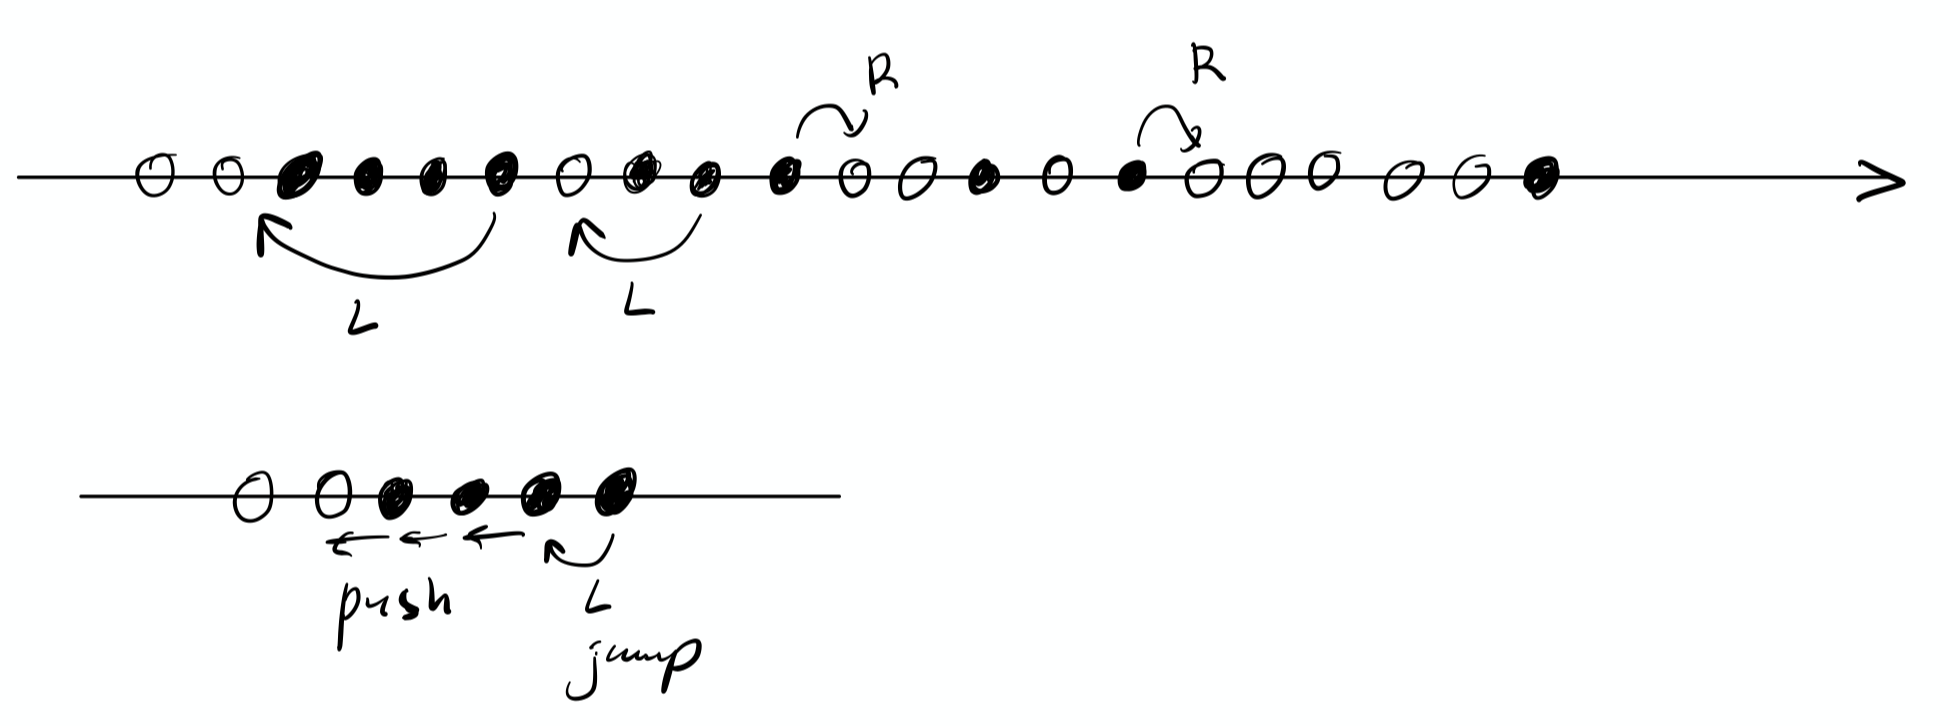 R R
L L
push L
jump